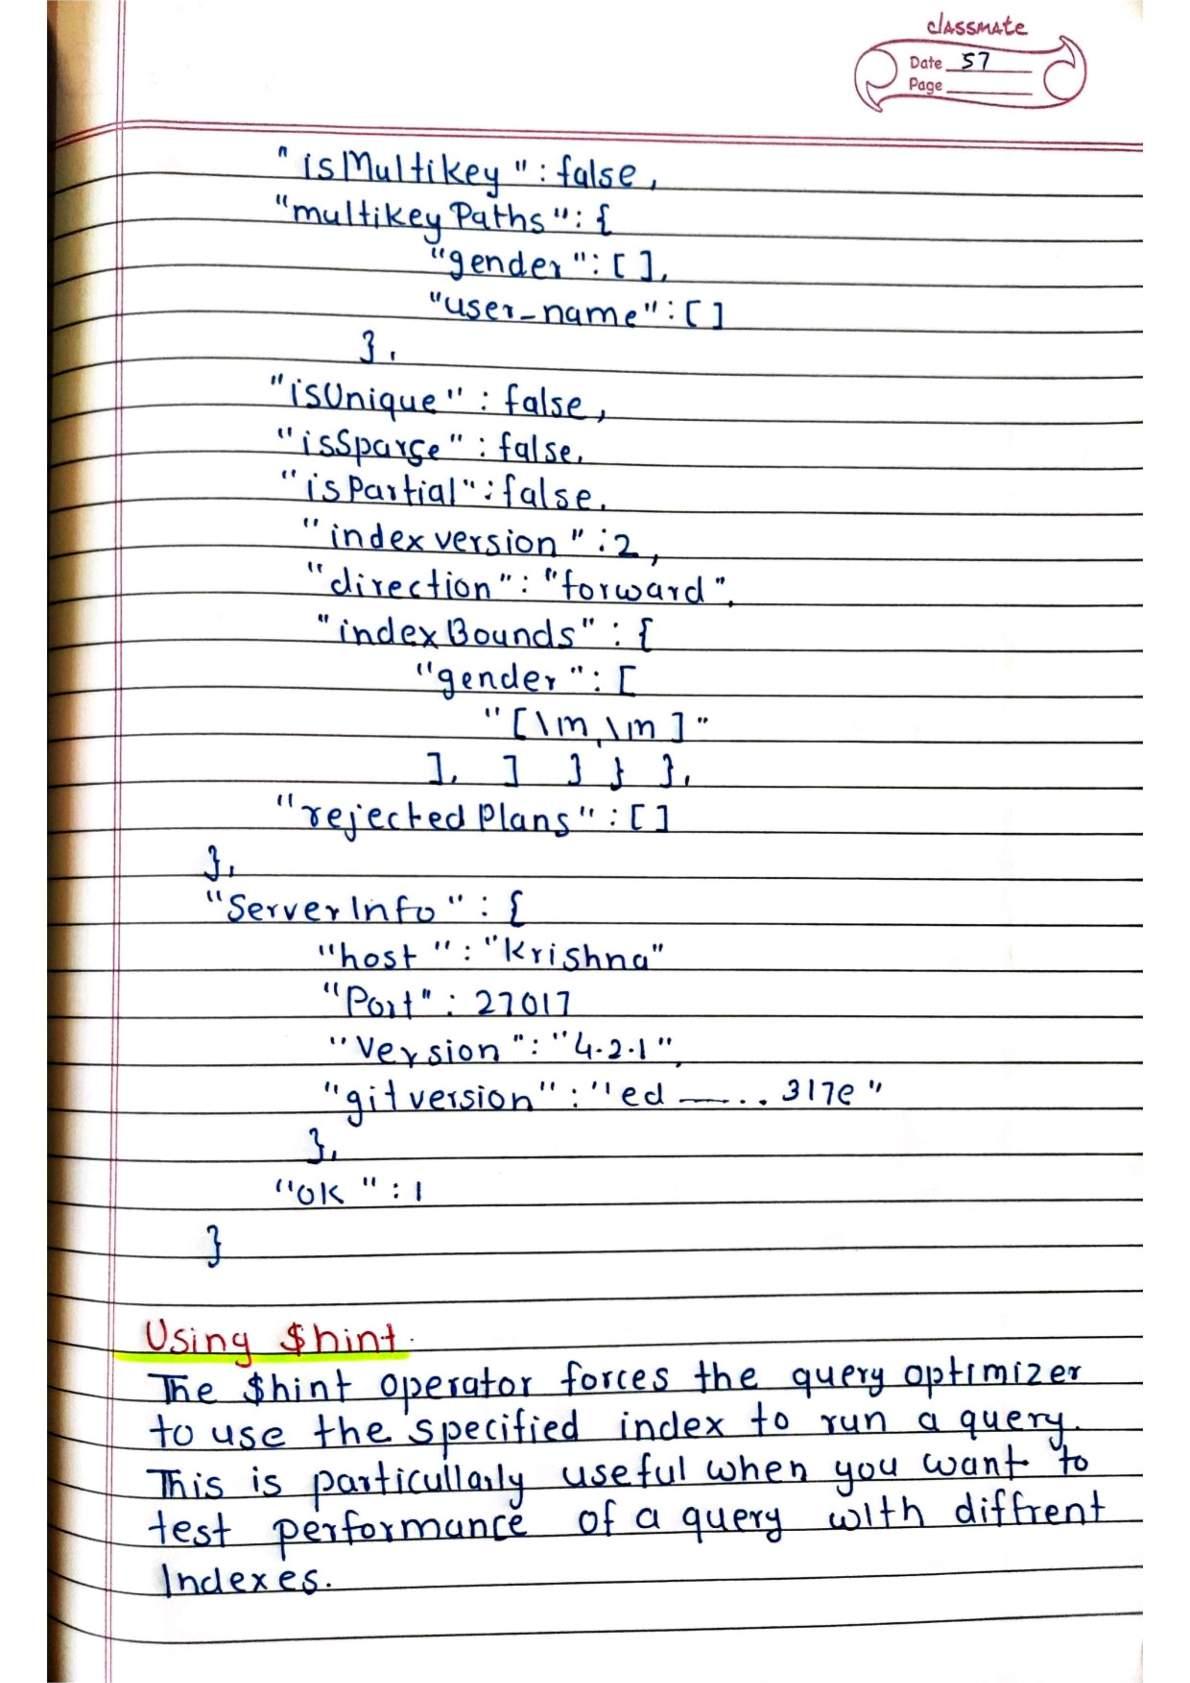 classmate
Date 57
Page
"isMultikey" : false,
"multikeyPaths": {
"gender": [ ],
"user_name" : [ ]
},
"isUnique" : false,
"isSparse" : false,
"isPartial": false,
"index version" : 2,
"direction": "forward",
"indexBounds" : {
"gender": [
"[\m,\m]"
], ] } } },
"rejected Plans" : [ ]
},
"Server Info" : {
"host" : "Krishna"
"Port" : 27017
"Version": "4.2.1",
"git version" : "ed —... 317e"
},
"OK" : 1
}
Using $hint.
The $hint operator forces the query optimizer
to use the specified index to run a query.
This is particullarly useful when you want to
test performance of a query with diffrent
Indexes.